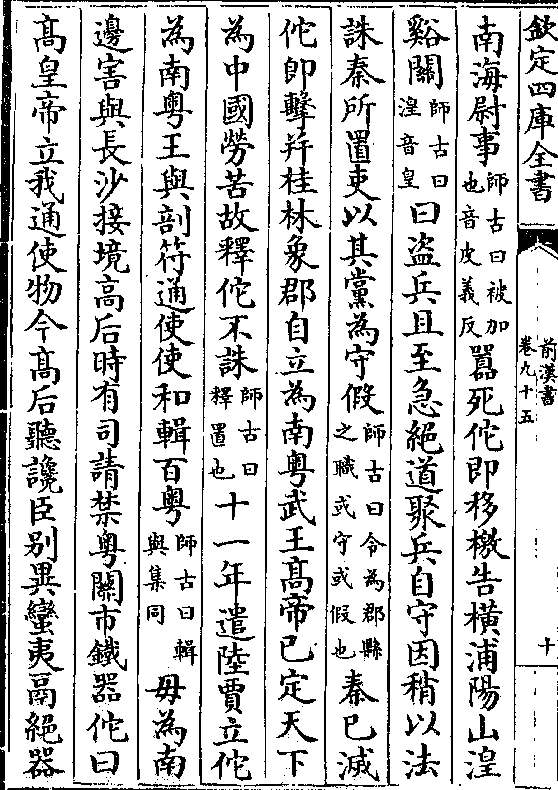 欽定四庫全書
前漢書
卷九十五
十
南海尉事師古曰被加也音皮義反嚣死佗即移檄告横浦陽山湟
谿關師古曰湟音皇曰盗兵且至急絶道聚兵自守因稍以法
誅秦所置吏以其黨為守假師古曰令為郡縣之職或守或假也秦已滅
佗即擊并桂林象郡自立為南粤武王髙帝已定天下
為中國勞苦故釋佗不誅師古曰釋置也十一年遣陸賈立佗
為南粤王與剖符通使使和輯百粤師古曰輯與集同毋為南
邊害與長沙接境高后時有司請禁粤關市鐵器佗曰
髙皇帝立我通使物今髙后聽讒臣别異蠻夷鬲絶器